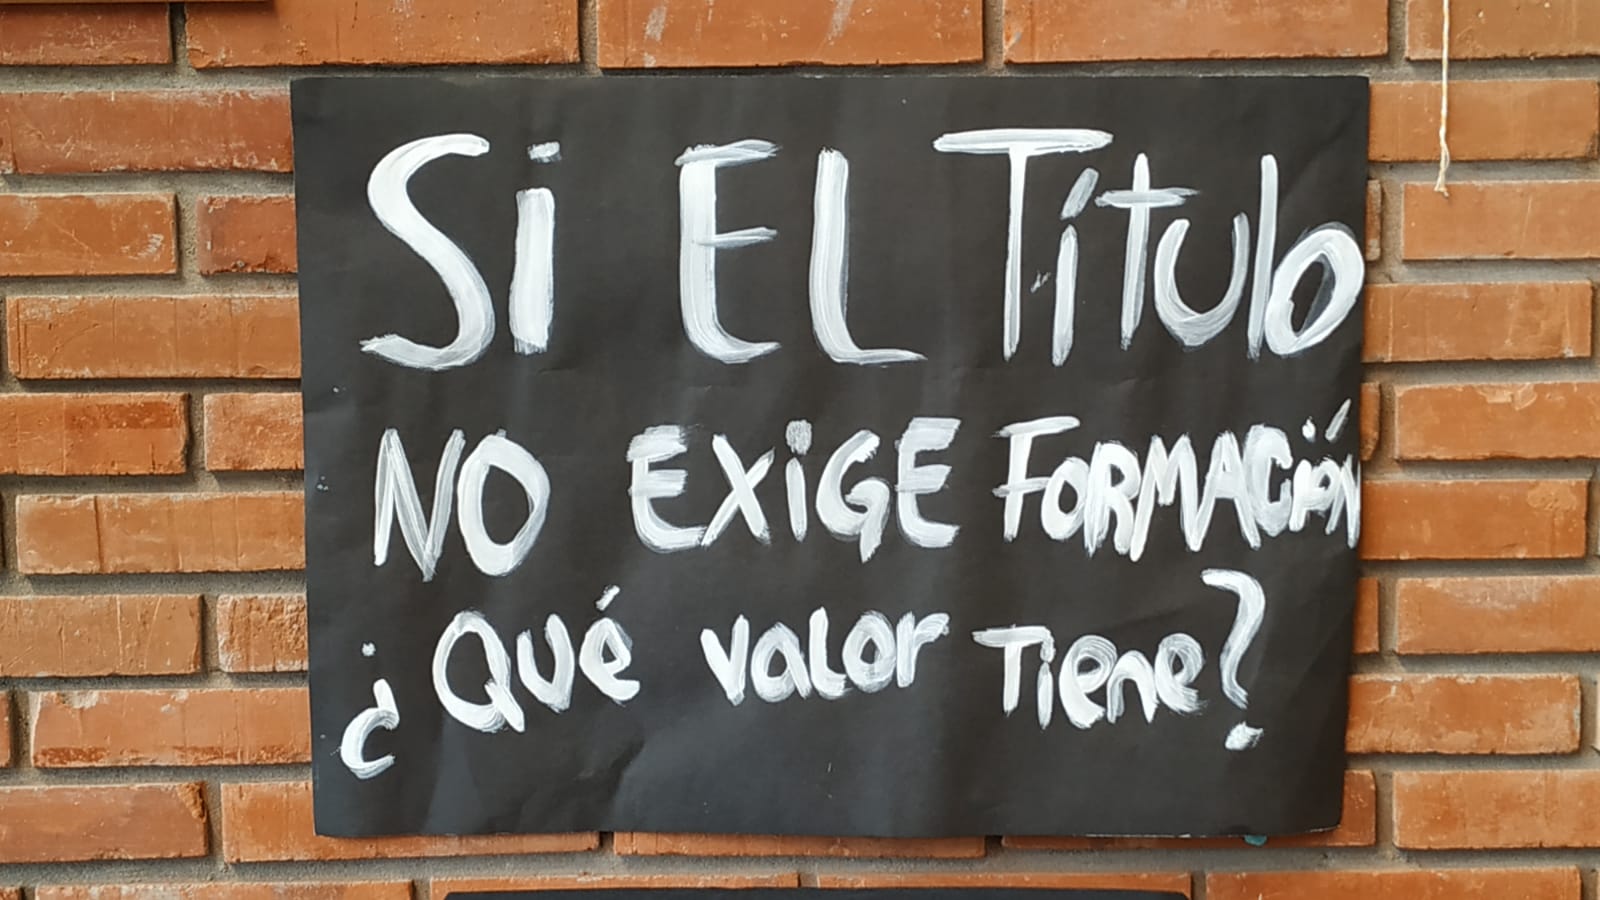 Si EL Título
NO EXiGE FORMACiÓN
¿Qué valor Tiene?